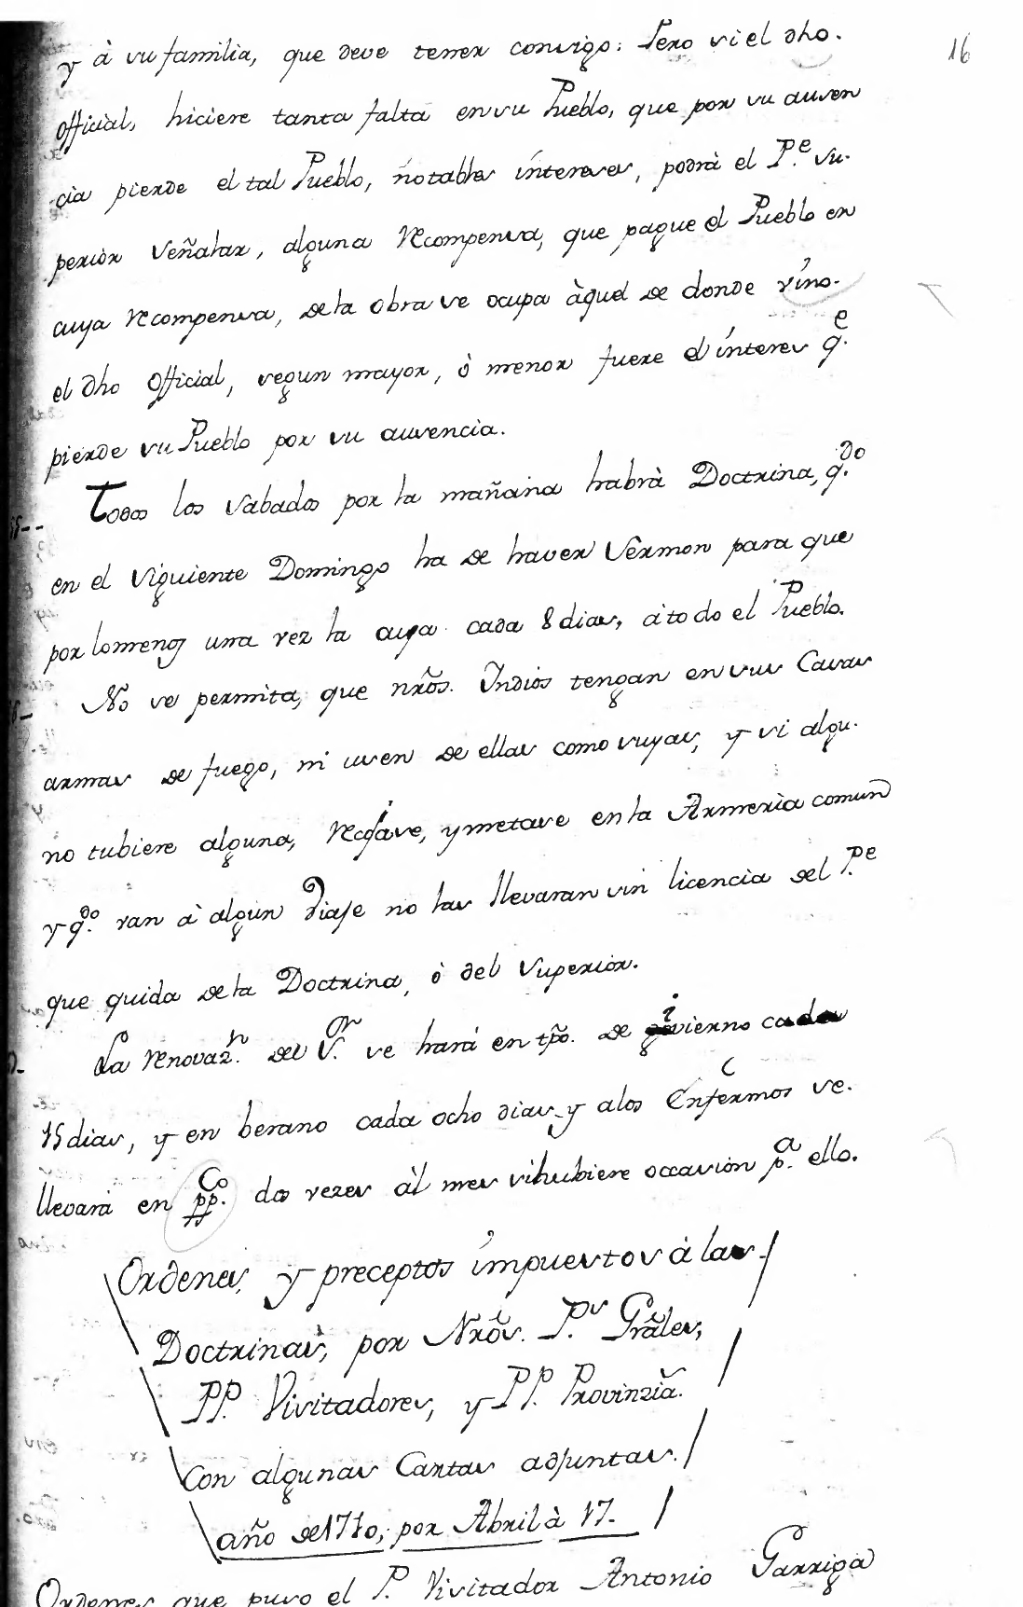 16
y à su familia, que deve tener consigo: Pero si el dho.
official, hiciere tanta falta en su Pueblo, que por su ausen
cia pierde el tal Pueblo, notables intereses, podrà el P.e Su-
perior señalar, alguna recompensa, que pague el Pueblo en
cuya recompensa, de la obra se ocupa àquel de donde vino.
el dho official, segun mayor, ò menor fuere el interes q.e
pierde su Pueblo por su ausencia.
55-- Todos los sabados por la mañana habrà Doctrina, q.do
en el siguiente Domingo ha de haver sermon para que
por lo menos una vez la aya cada 8 dias, à todo el Pueblo.
No se permita, que nrõs. Indios tengan en sus Casas
armas de fuego, ni usen de ellas como suyas, y si algu-
no tubiere alguna, recojase, y metase en la Armeria comun
y q.do van à algun viaje no las llevaran sin licencia del P.e
que quida de la Doctrina, ò del Superior.
La renovaz.n del S.or se hará en tpõ. de ivierno cada
15 dias, y en berano cada ocho dias y a los Enfermos se-
llevará en pp.co dos vezes àl mes si hubiere occasiòn p.a ello.
Ordenes, y preceptos impuestos à las
Doctrinas, por Nrõs. P.s Grãles,
PP. Visitadores, y PP. Provinziã.s
Con algunas Cartas adjuntas.
año de 1710, por Abril à 17.
Ordenes que puso el P. Visitador Antonio Garriga